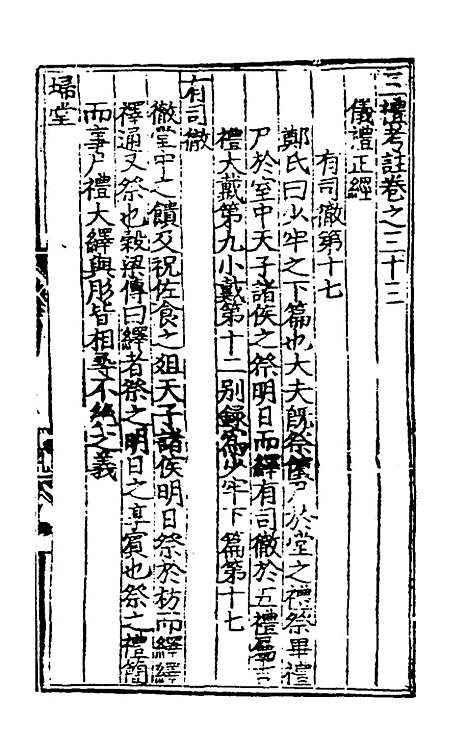 三禮考註卷之三十三
儀禮正經
有司徹第十七
鄭氏曰少牢之下篇也大夫旣祭儐尸於堂之禮祭畢禮
尸於室中天子諸侯之祭明日而繹有司徹於五禮屬吉
禮大戴第九小戴第十二别録篇少牢下篇第十七
有司徹
徹堂中之饋及祝佐食之俎天子諸侯明日祭於祊而繹繹
禪通又祭也穀梁傳曰繹者祭之明日之享賓也祭之禮簡
而事尸禮大繹與肜皆相尋不絶之義
埽堂